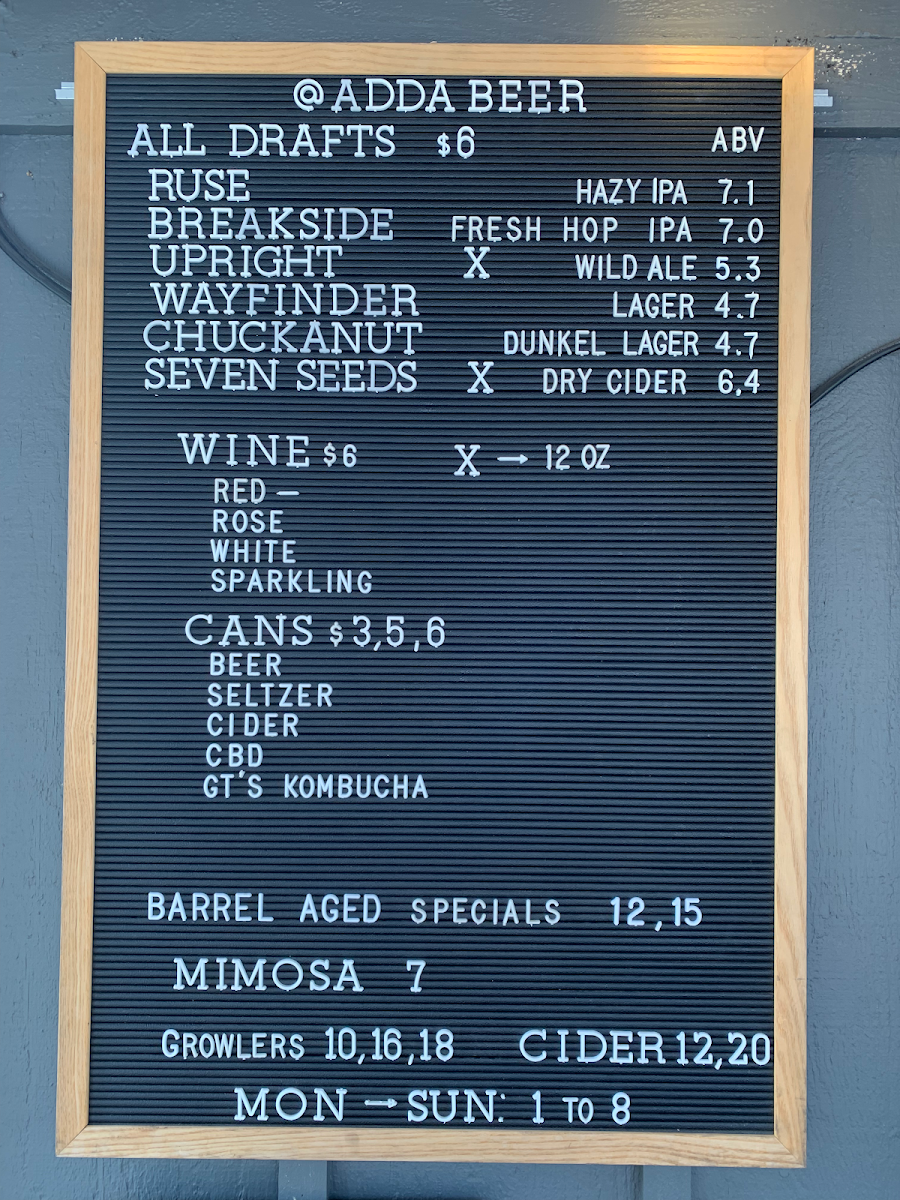 @ADDA BEER
ALL DRAFTS $6 ABV
RUSE HAZY IPA 7.1
BREAKSIDE FRESH HOP IPA 7.0
UPRIGHT X WILD ALE 5.3
WAYFINDER LAGER 4.7
CHUCKANUT DUNKEL LAGER 4.7
SEVEN SEEDS X DRY CIDER 6,4
WINE $6 X → 12 OZ
RED —
ROSE
WHITE
SPARKLING
CANS $3,5,6
BEER
SELTZER
CIDER
CBD
GT'S KOMBUCHA
BARREL AGED SPECIALS 12,15
MIMOSA 7
GROWLERS 10,16,18 CIDER 12,20
MON → SUN: 1 TO 8